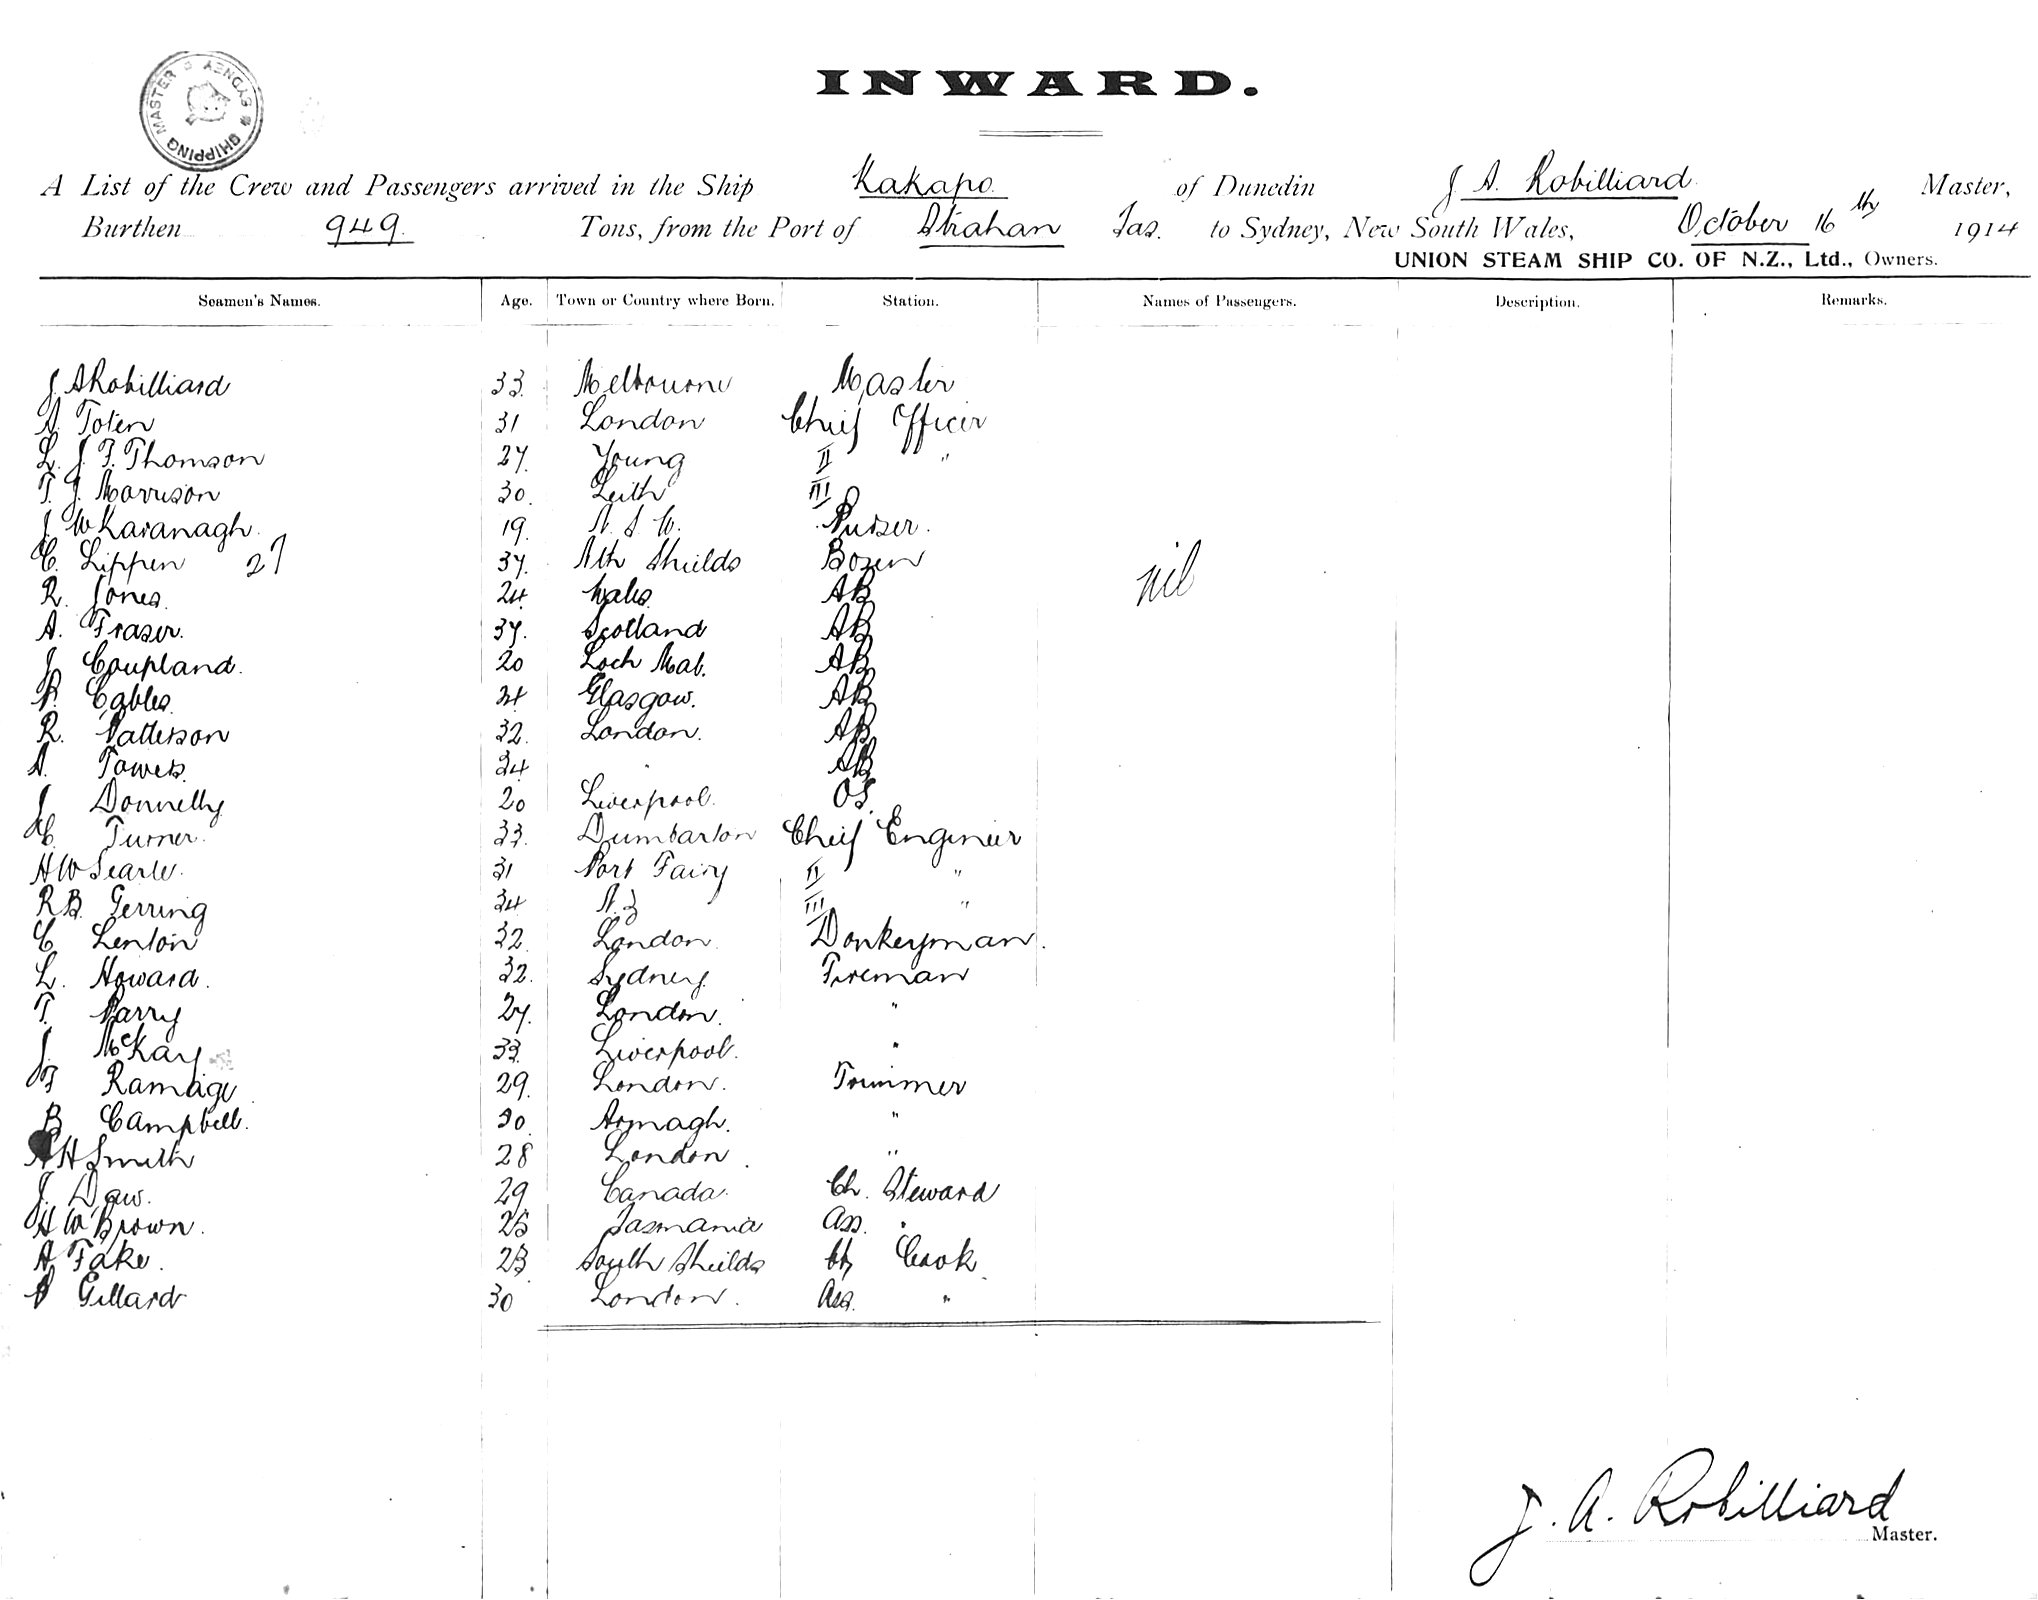 SHIPPING MASTER SYDNEY
INWARD.
A List of the Crew and Passengers arrived in the Ship Kakapo of Dunedin J A. Robilliard Master,
Burthen 949. Tons, from the Port of Strahan Tas. to Sydney, New South Wales, October 16th 1914
UNION STEAM SHIP CO. OF N.Z., Ltd., Owners.
Seamen's Names. Age. Town or Country where Born. Station. Names of Passengers. Description. Remarks.
J A Robilliard 33 Melbourne Master
A. Toten 31 London Chief Officer
L. J. F. Thomson 27. Young II "
T. J. Morrison 30. Leith III
J W Kavanagh. 19. N. S. W. Purser.
C. Lippen 27 37. Nth Shields Bosen
R. Jones. 24 Wales. AB
A. Fraser. 37. Scotland AB
J Coupland. 20 Loch Mab. AB
P. Cables. 24 Glasgow. AB
R. Patterson 32. London. AB
A. Towers. 24 " AB
J Donnelly 20 Liverpool. OS.
C. Turner. 33. Dumbarton Chief Engineer
H W Searle. 31 Port Fairy II "
R B. Gerring 34 N.Z III "
C Lenton 32 London. Donkeyman.
L. Howard. 32. Sydney. Fireman
T. Parry 27. London. "
J. McKay 33. Liverpool. "
F Ramage 29. London. Trimmer
B Campbell. 30. Armagh. "
A H Smith 28 London. "
J. Daw. 29 Canada. Ch. Steward
H W Brown. 25 Tasmania Ass. "
A Fake. 23 South Shields Ch Cook.
Gillard 30 London. Ass. "
nil
J. A. Robilliard
Master.